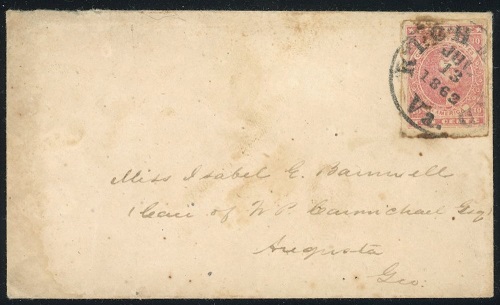 RICH
JUL
13
1862
Va.
AMERICA
10
CENTS
Miss Isabel E. Barnwell
(Care of W P. Carmichael Esq
Augusta
Geo.